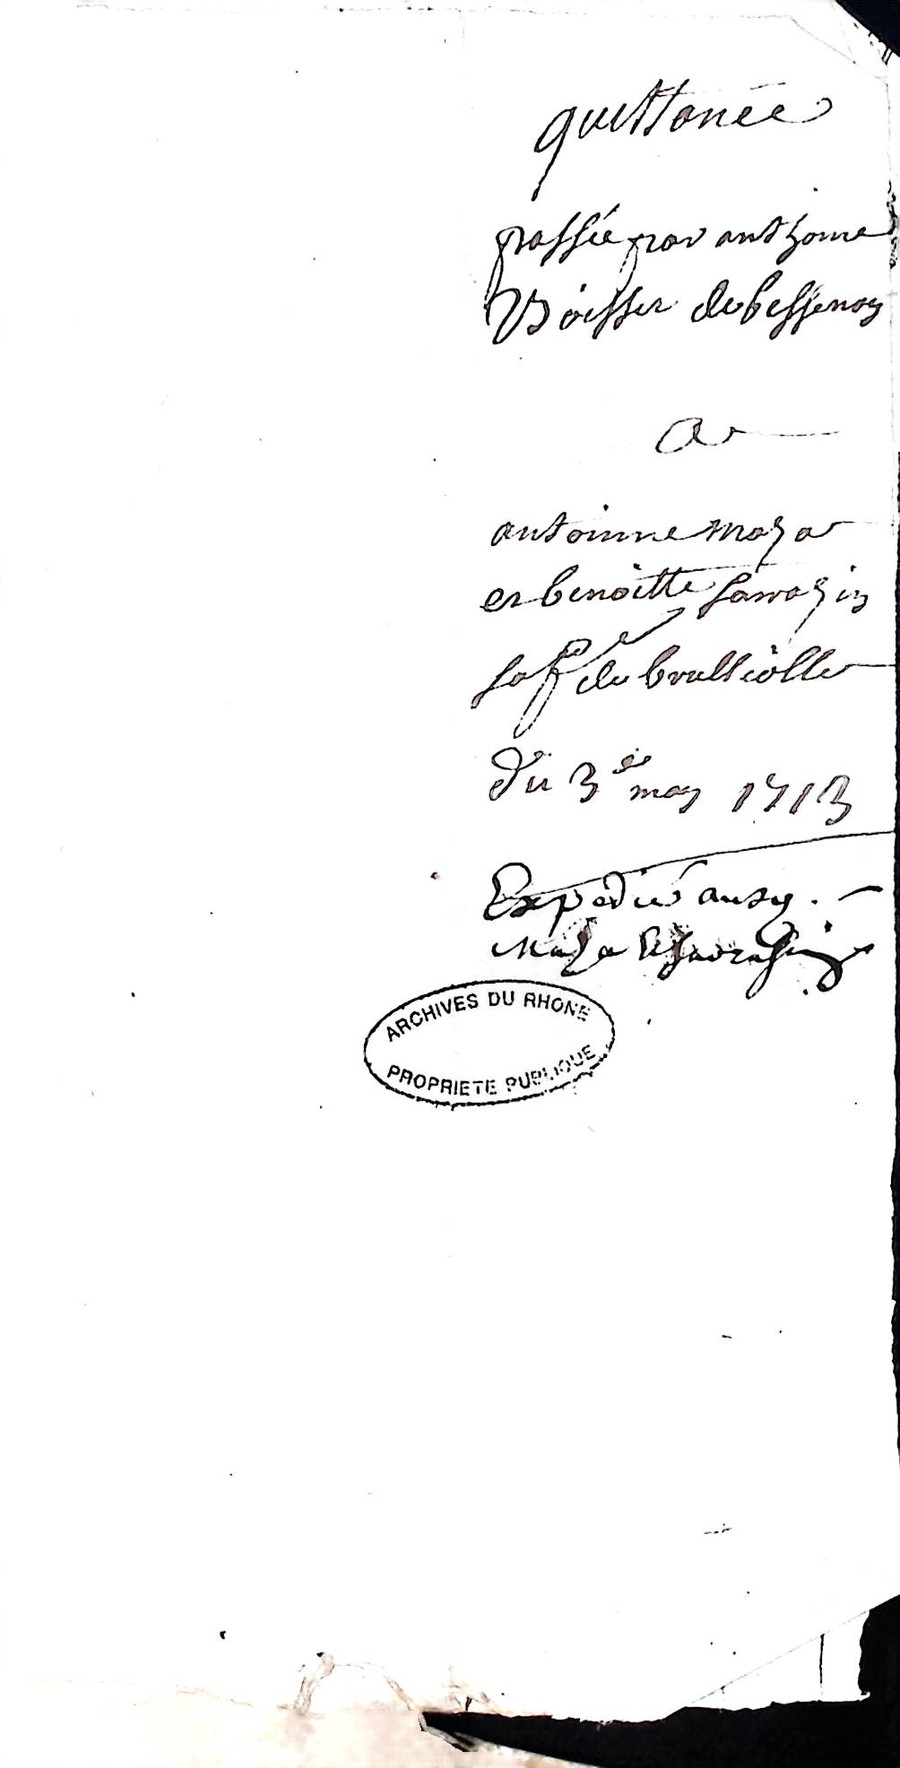 quittance
passée par anthoine
Voisser de bessenay
a
antoinne maza
et benoitte sarrazin
sa fe de brussiolle
du 3e may 1713
Expedié ausd.
Maza & Sarrasin
ARCHIVES DU RHONE
PROPRIETE PUBLIQUE